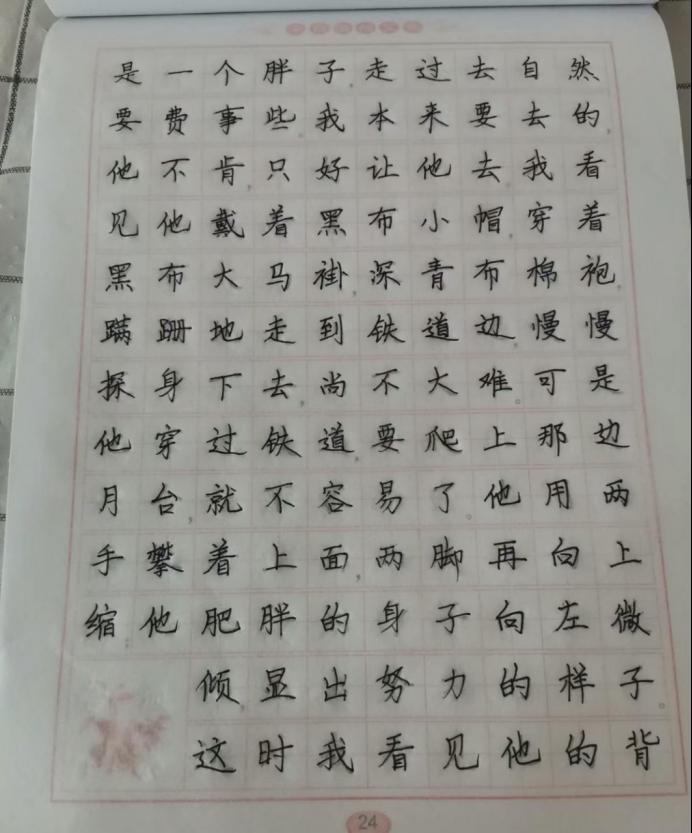 是一个胖子,走过去自然
要费事些,我本来要去的,
他不肯,只好让他去,我看
见他戴着黑布小帽,穿着
黑布大马褂,深青布棉袍,
蹒跚地走到铁道边,慢慢
探身下去,尚不大难。可是
他穿过铁道,要爬上那边
月台,就不容易了。他用两
手攀着上面,两脚再向上
缩,他肥胖的身子向左微
倾,显出努力的样子。
这时我看见他的背
24